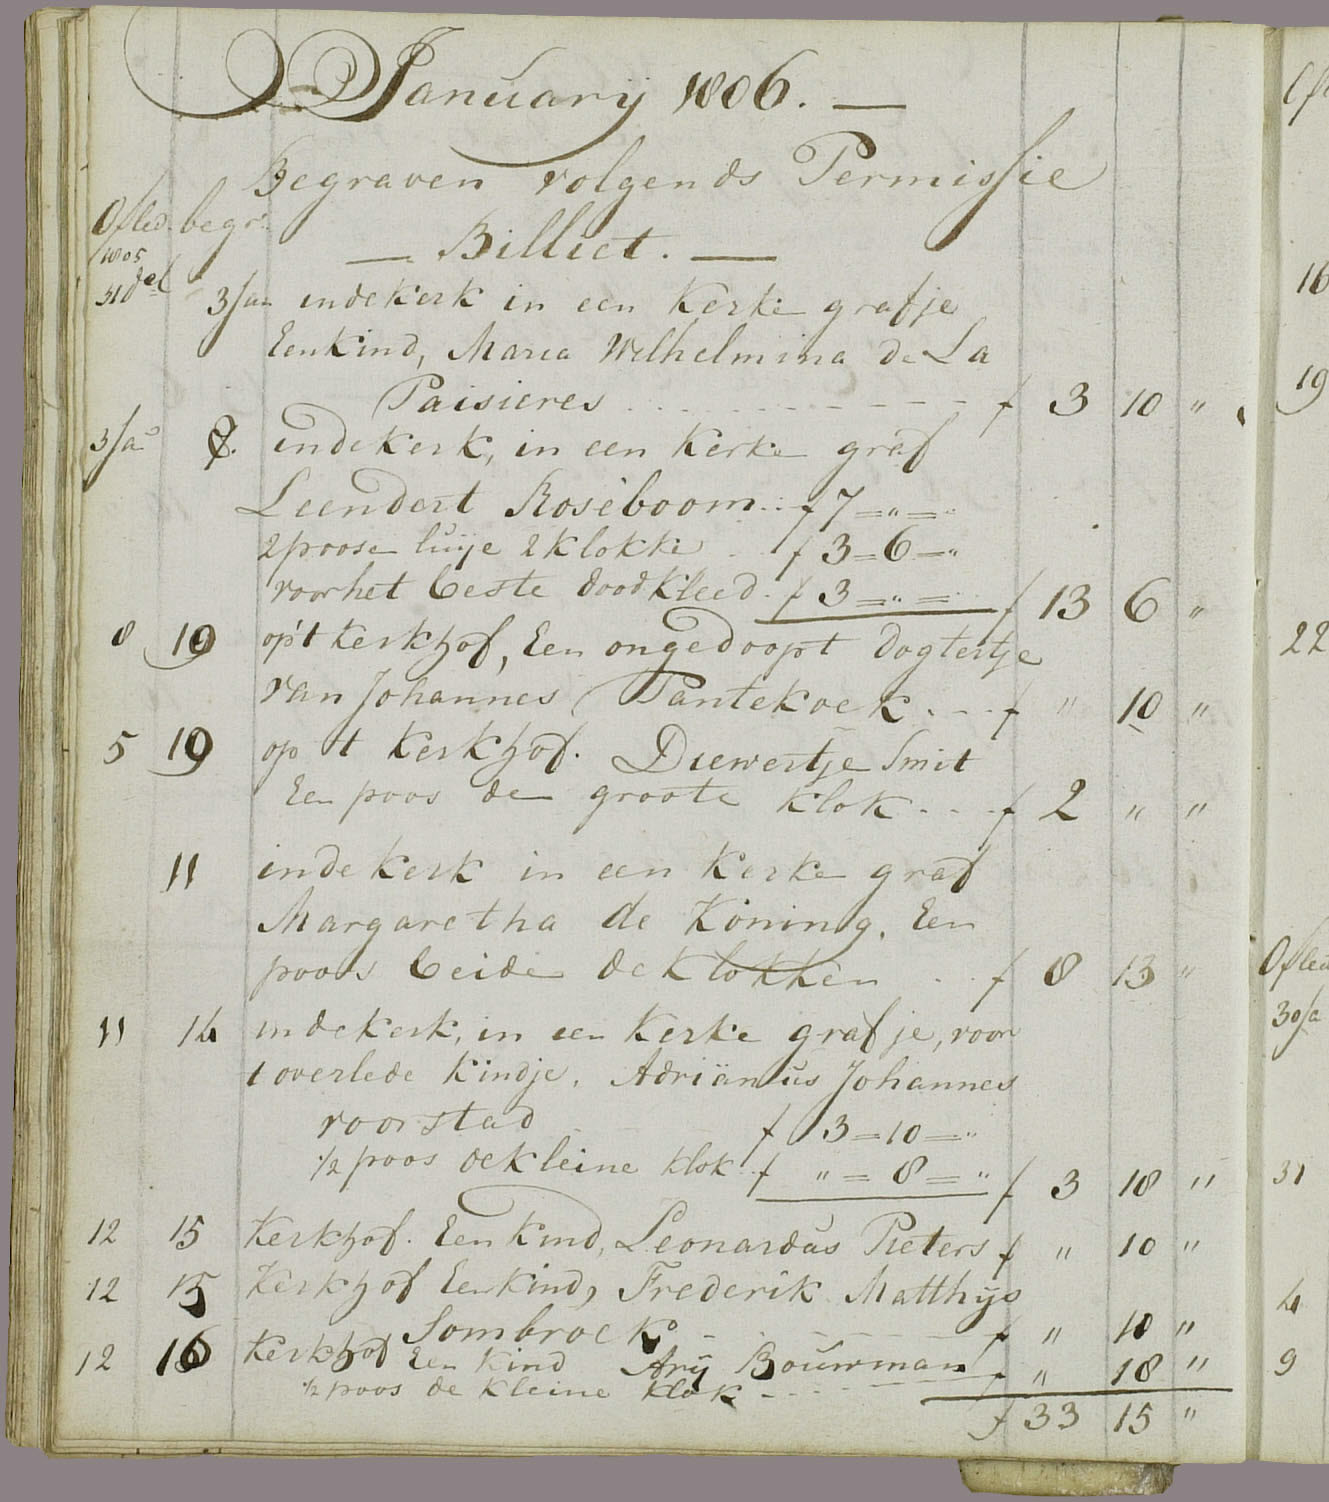 January 1806. —
Begraven volgends Permissie
Ofled. begr:
— Billiet. —
1805
31 det 3 Jan indekerk in een Kerke grafje
Eenkind, Maria Wilhelmina de La
Paisieres f 3 10 "
3 Jan 7. indekerk, in een Kerke graf
Leendert Roseboom f 7 = " = "
2 poose luije 2 klokke f 3 = 6 = "
voor het beste doodkleed f 3 = " = " f 13 6 "
8 10 op't Kerkhof, Een ongedoopt dogtertje
van Johannes Pantekoek f " 10 "
5 10 op 't Kerkhof. Diewertje Smit
Een poos de groote klok f 2 " "
11 indekerk in een Kerke graf
Margaretha de Koning. Een
poos beide de klokken f 8 13 "
11 14 indekerk, in een Kerke grafje, voor
t overlede kindje. Adriänus Johannes
voorstad f 3 = 10 = "
1/2 poos de kleine klok f " = 8 = " f 3 18 "
12 15 Kerkhof. Een Kind, Leonardus Pieters f " 10 "
12 15 Kerkhof Een kind, Frederik Matthijs
Sombroek f " 10 "
12 16 Kerkhof Een kind Arij Bouwman f " 18 "
1/2 poos de kleine klok
f 33 15 "
16
19
22
Ofled
30 Ja
31
4
9